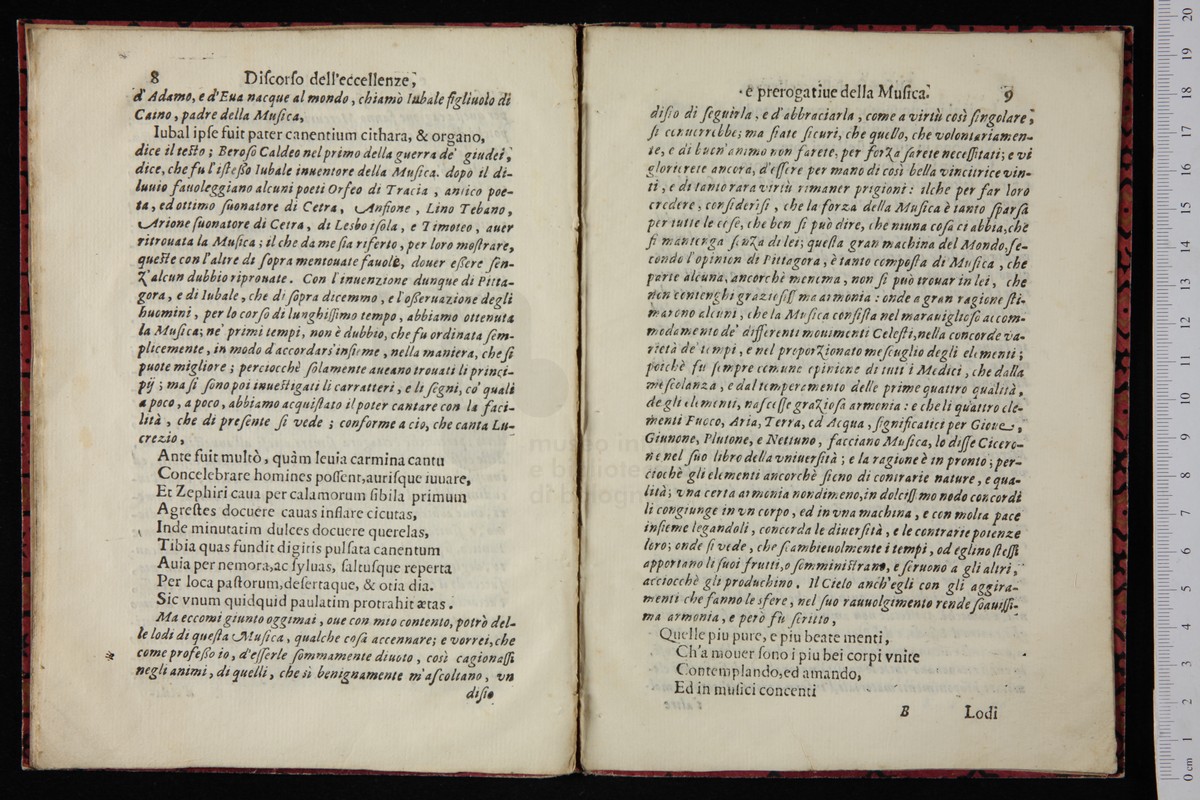 8 Diſcorſo dell'eccellenze,
d' Adamo, e d'Eua nacque al mondo, chiamò Iubale figliuolo di
Caino, padre della Muſica,
Iubal ipſe fuit pater canentium cithara, & organo,
dice il teſto; Beroſo Caldeo nel primo della guerra de' giudei,
dice, che fu l'iſteßo Iubale inuentore della Muſica. dopo il di-
luuio fauoleggiano alcuni poeti Orfeo di Tracia, antico poe-
ta, ed ottimo ſuonatore di Cetra, Anfione, Lino Tebano,
Arione ſuonatore di Cetra, di Lesbo iſola, e Timoteo, auer
ritrouata la Muſica; il che da me ſia riferto, per loro moſtrare,
queſte con l'altre di ſopra mentouate fauole, douer eßere ſen-
z'alcun dubbio riprouate. Con l'inuenzione dunque di Pitta-
gora, e di Iubale, che di ſopra dicemmo, e l'oßeruazione degli
huomini, per lo corſo di lunghiſſimo tempo, abbiamo ottenuta
la Muſica; ne' primi tempi, non è dubbio, che fu ordinata ſem-
plicemente, in modo d'accordarſ'inſieme, nella maniera, che ſi
puote migliore; perciocchè ſolamente aueano trouati li princi-
pij; ma ſi ſono poi inueſtigati li carratteri, e li ſegni, co' quali
a poco, a poco, abbiamo acquiſtato il poter cantare con la faci-
lità, che di preſente ſi vede; conforme a cio, che canta Lu-
crezio,
Ante fuit multò, quàm leuia carmina cantu
Concelebrare homines poſſent, auriſque iuuare,
Et Zephiri caua per calamorum ſibila primum
Agreſtes docuere cauas inflare cicutas,
Inde minutatim dulces docuere querelas,
Tibia quas fundit digitis pulſata canentum
Auia per nemora, ac ſyluas, ſaltuſque reperta
Per loca paſtorum, deſertaque, & otia dia.
Sic vnum quidquid paulatim protrahit ætas.
Ma eccomi giunto oggimai, oue con mio contento, potrò del-
le lodi di queſta Muſica, qualche coſa accennare; e vorrei, che
come profeßo io, d'eſſerle ſommamente diuoto, così cagionaſſi
negli animi, di quelli, che sì benignamente m'aſcoltano, vn
diſio
e prerogatiue della Muſica. 9
diſio di ſeguirla, e d'abbraciarla, come a virtù così ſingolare,
ſi conuerrebbe; ma ſiate ſicuri, che quello, che volontariamen-
te, e di buon'animo non farete, per forza ſarete neceſſitati; e vi
glorierete ancora, d'eſſere per mano di così bella vincitrice vin-
ti, e di tanto rara virtù rimaner prigioni: ilche per far loro
credere, conſideriſi, che la forza della Muſica è tanto ſparſa
per tutte le coſe, che ben ſi può dire, che niuna coſa ci abbia, chè
ſi mantenga ſenza di lei; queſta gran machina del Mondo, ſe-
condo l'opinion di Pittogora, è tanto compoſta di Muſica, che
parte alcuna, ancorchè menima, non ſi può trouar in lei, che
non contenghi grazioſiſſima armonia: onde a gran ragione ſti-
marono alcuni, che la Muſica conſiſta nel marauiglioſo accom-
modamento de' differenti mouimenti Celeſti, nella concorde va-
rietà de' tempi, e nel proporzionato meſcuglio degli elementi;
poichè fu ſempre comune opinione di tuti i Medici, che dalla
meſcolanza, e dal temperemento delle prime quattro qualità,
degli elementi, naſceſſe grazioſa armonia: e che li quattro ele-
menti Fuoco, Aria, Terra, ed Acqua, ſignificatici per Gioue,
Giunone, Plutone, e Nettuno, facciano Muſica, lo diſſe Cicero-
ne nel ſuo libro della vniuerſità; e la ragione è in pronto; per-
ciochè gli elementi ancorchè ſieno di contrarie nature, e qua-
lità; vna certa armonia nondimeno, in dolciſſimo nodo concordi
li congiunge in vn corpo, ed in vna machina, e con molta pace
inſieme legandoli, concorda le diuerſità, e le contrarie potenze
loro; onde ſi vede, che ſcambieuolmente i tempi, od eglino ſteſſi
apportano li ſuoi frutti, o ſomminiſtrano, e ſeruono a gli altri,
acciocchè gli produchino. Il Cielo anch'egli con gli aggira-
menti che fanno le sfere, nel ſuo rauuolgimento rende ſoauiſſi-
ma armonia, e però fu ſcritto,
Quelle piu pure, e piu beate menti,
Ch'a mouer ſono i piu bei corpi vnite
Contemplando, ed amando,
Ed in muſici concenti
B Lodi